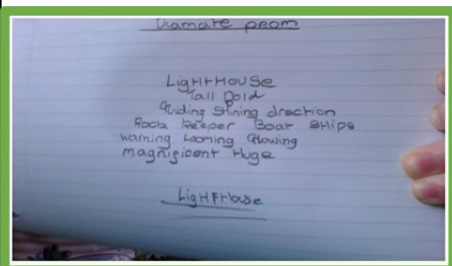 Diamante peom
LigHtHouse
Tall Bold
Guiding Shining drection
Rock keeper Boat SHips
warning Looming Glowing
magnificent Huge
LigHtHouse